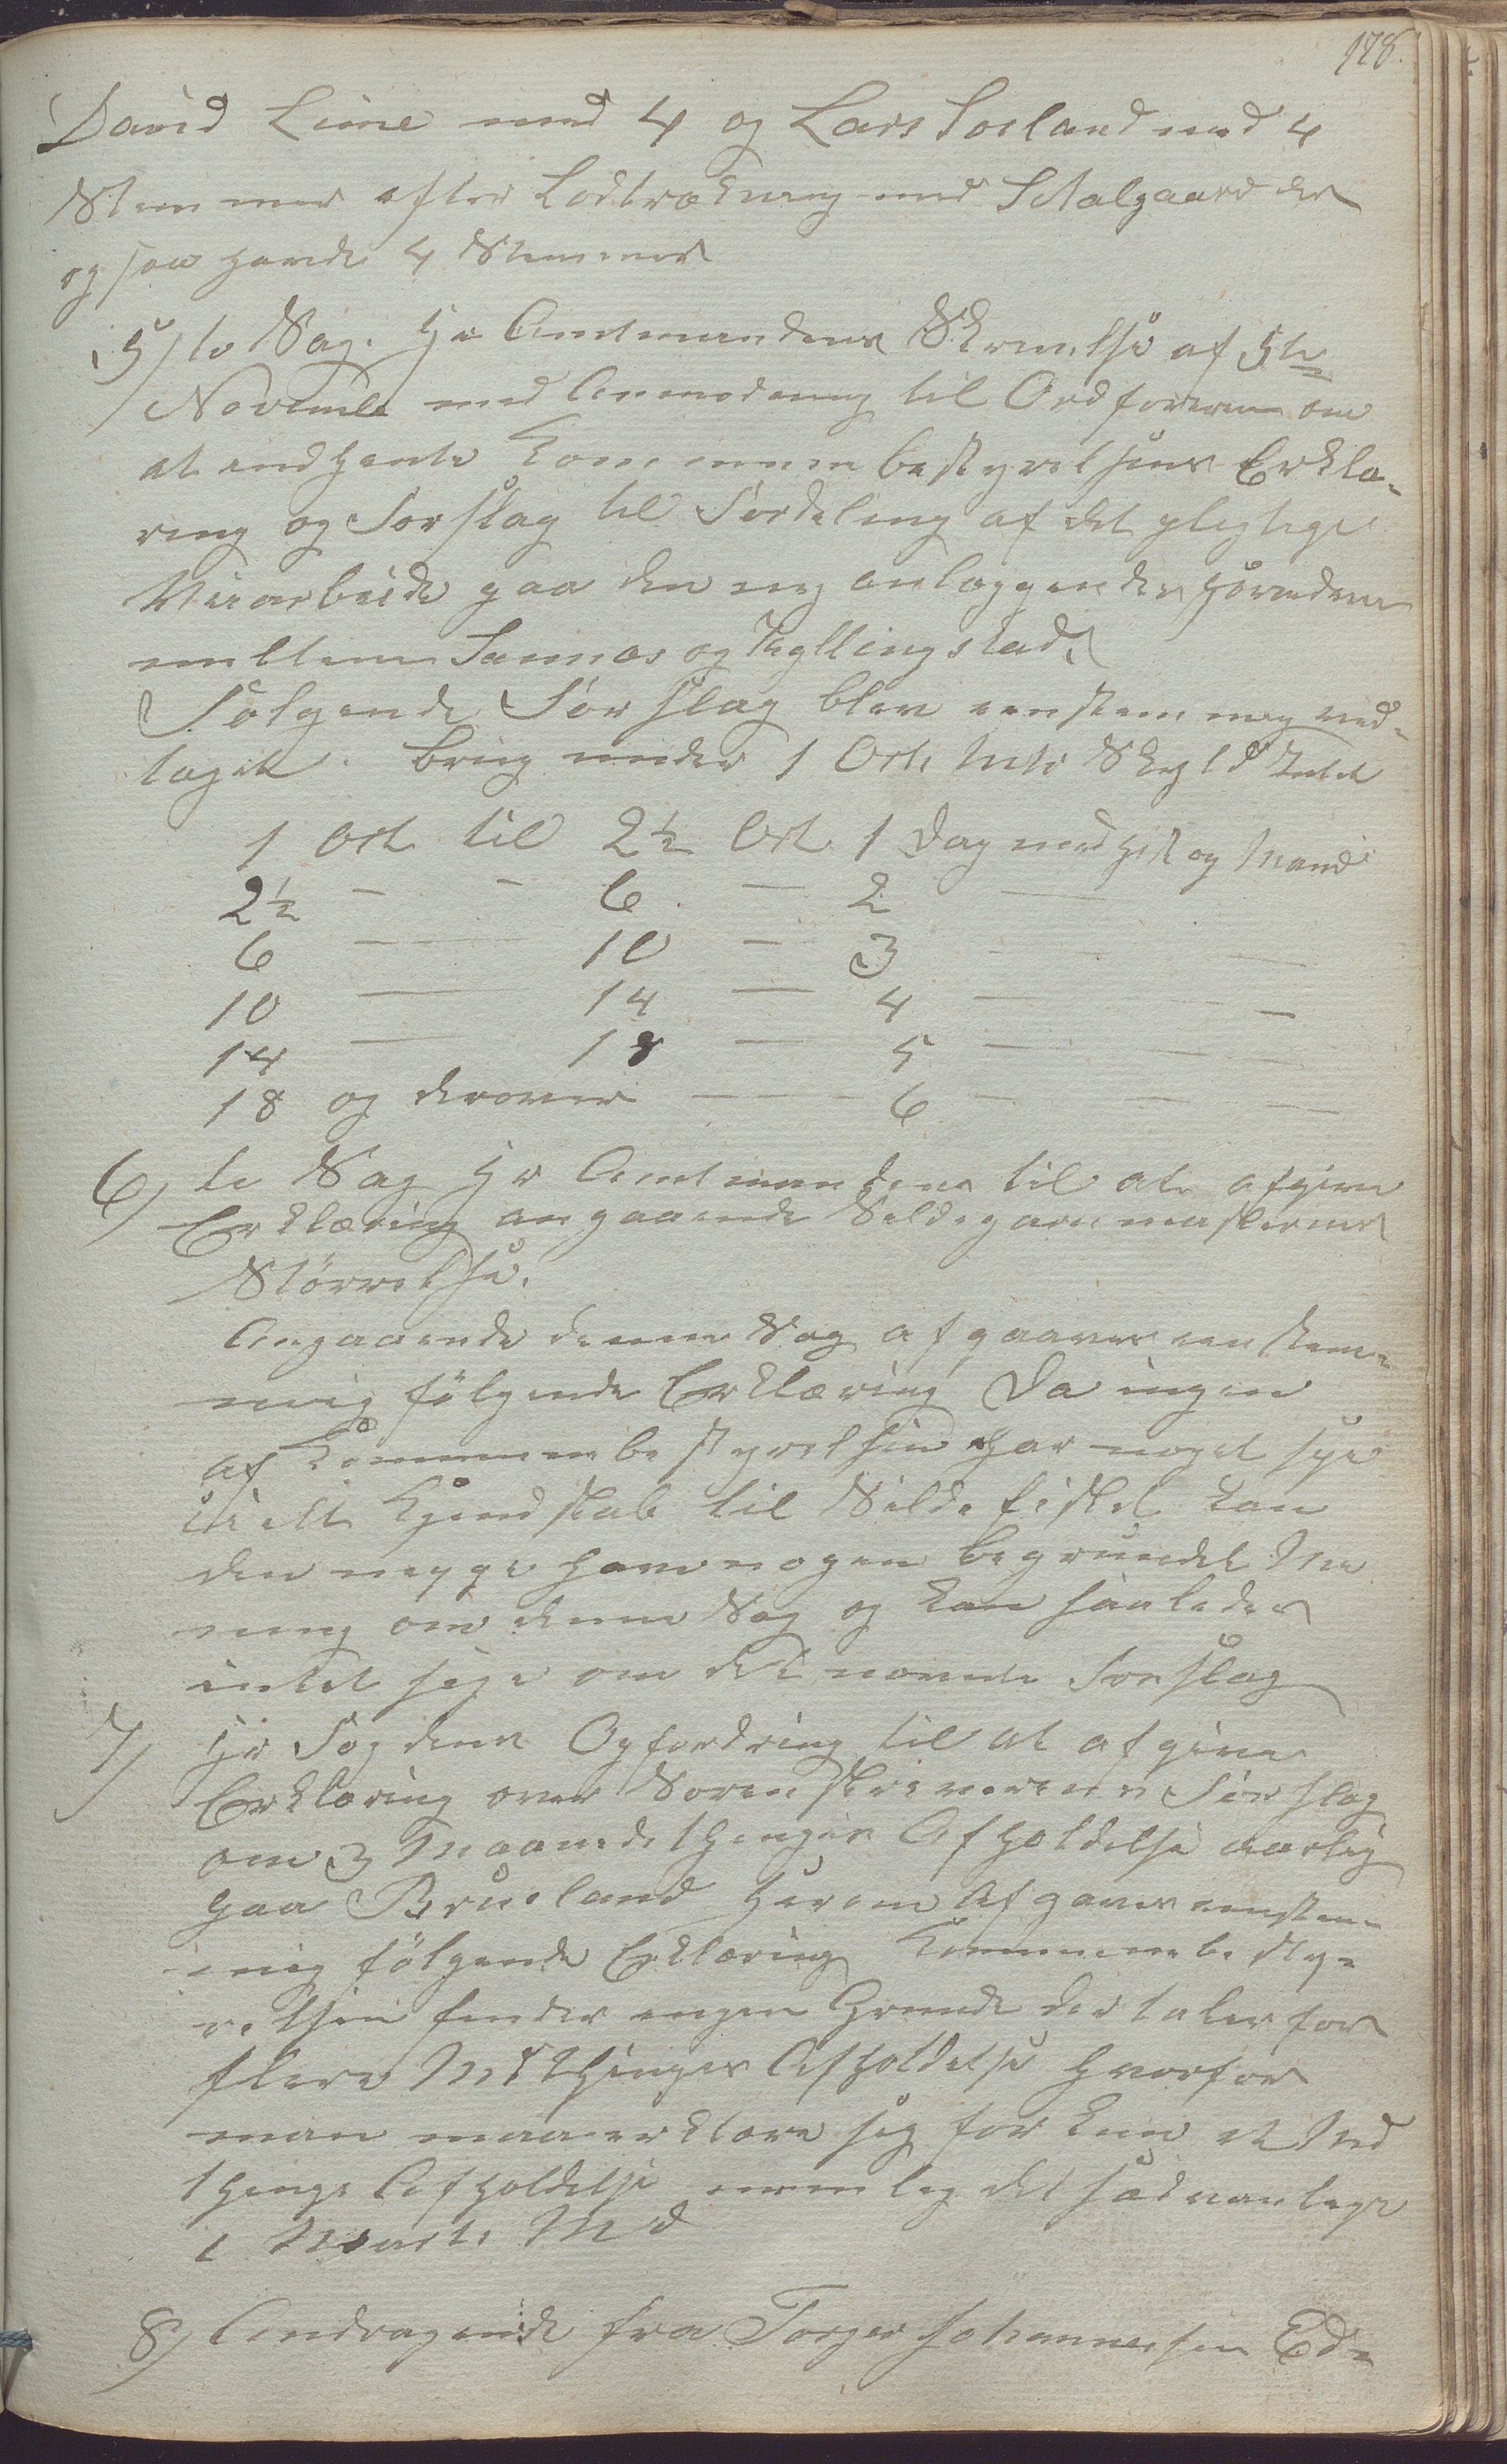 178.
David Lime med 4 og Lars Soeland med 4
Stemmer efter Lodtrækning med S Aalgaard der
ogsaa havde 4 Stemmer
5/ te Sag. Hr Amtmandens Skrivelse af 5te
Novembr med Anmodning til Ordføreren om
at indhente Kommunebestyrelsens Erklæ-
ring og Forslag til Fordeling af det pligtige
Veiarbeide paa den ny anlæggende Hovedvei
mellem Sannæs og Kyllingstad.
Følgende Forslag blev eenstemmig ved-
taget. Brug under 1 Ort Mts Skyld Intet
1 Ort til 2½ Ort 1 Dag med Hest og Mand
2½ - - 6 - 2 -
6 - 10 - 3 - -
10 - 14 - 4 - - -
14 - 18 - 5 - - -
18 og derover - - - 6 - - -
6/ te Sag Hr Amtmanden til at afgive
Erklæring angaaende Sildegarnmaskernes
Størrelse.
Angaaende denne Sag afgaves eenstem-
mig følgende Erklæring Da ingen
af Kommunebestyrelsen har noget spe
cielt Kjendskab til Sildefisket kan
den neppe have nogen begrundet Me
ning om denne Sag og kan saaledes
intet sige om det nævnte Forslag
7/ Hr Fogdens Opfordring til at afgive
Erklæring over Sorenskriverens Forslag
om 3 Maanedsthinges Afholdelse aarlig
paa Brueland Herom afgaves eenstem-
mig følgende Erklæring Kommunebesty-
relsen finder ingen Grunde der taler for
flere Mdthinges Afholdelse hvorfor
man maa erklære sig for kun et Md
things Afholdelse nemlig det sædvanlige
i Marts Md
8/ Andragende fra Torger Johannesen Ed-